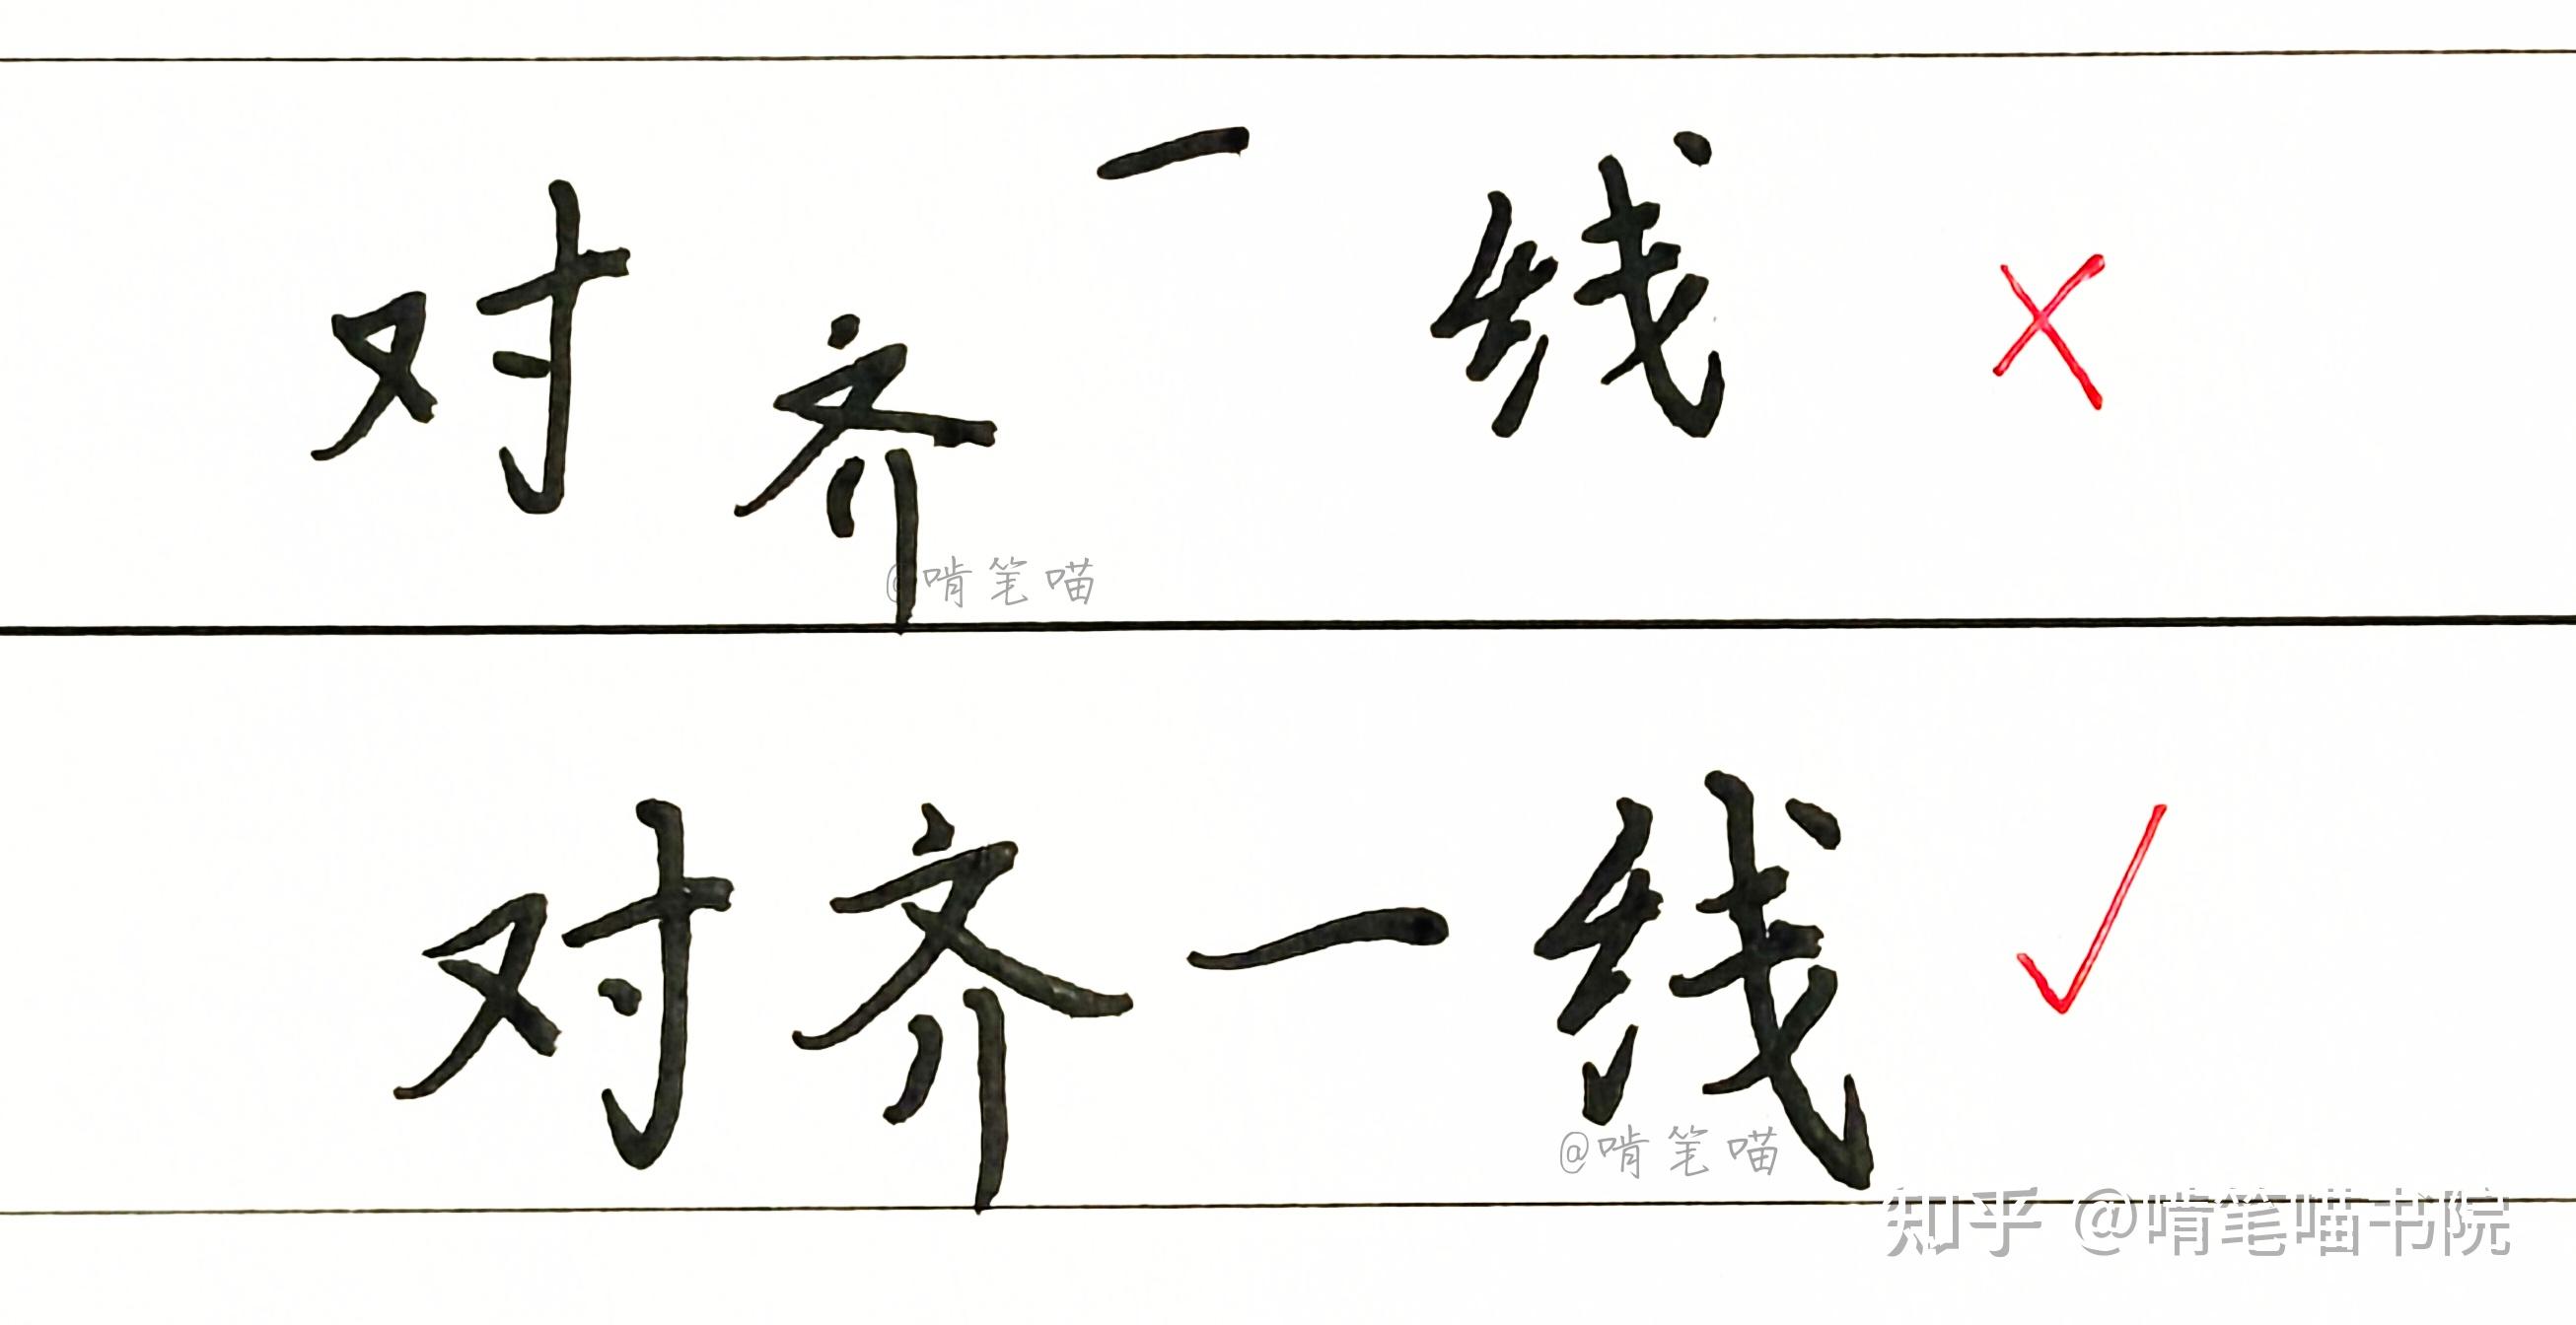 对齐一线 ×
@啃笔喵
对齐一线 ✓
@啃笔喵
知乎 @啃笔喵书院